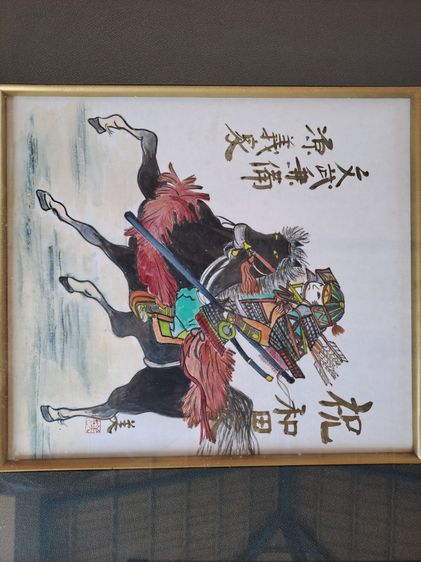 祝和田
文武兼備
源義家
義